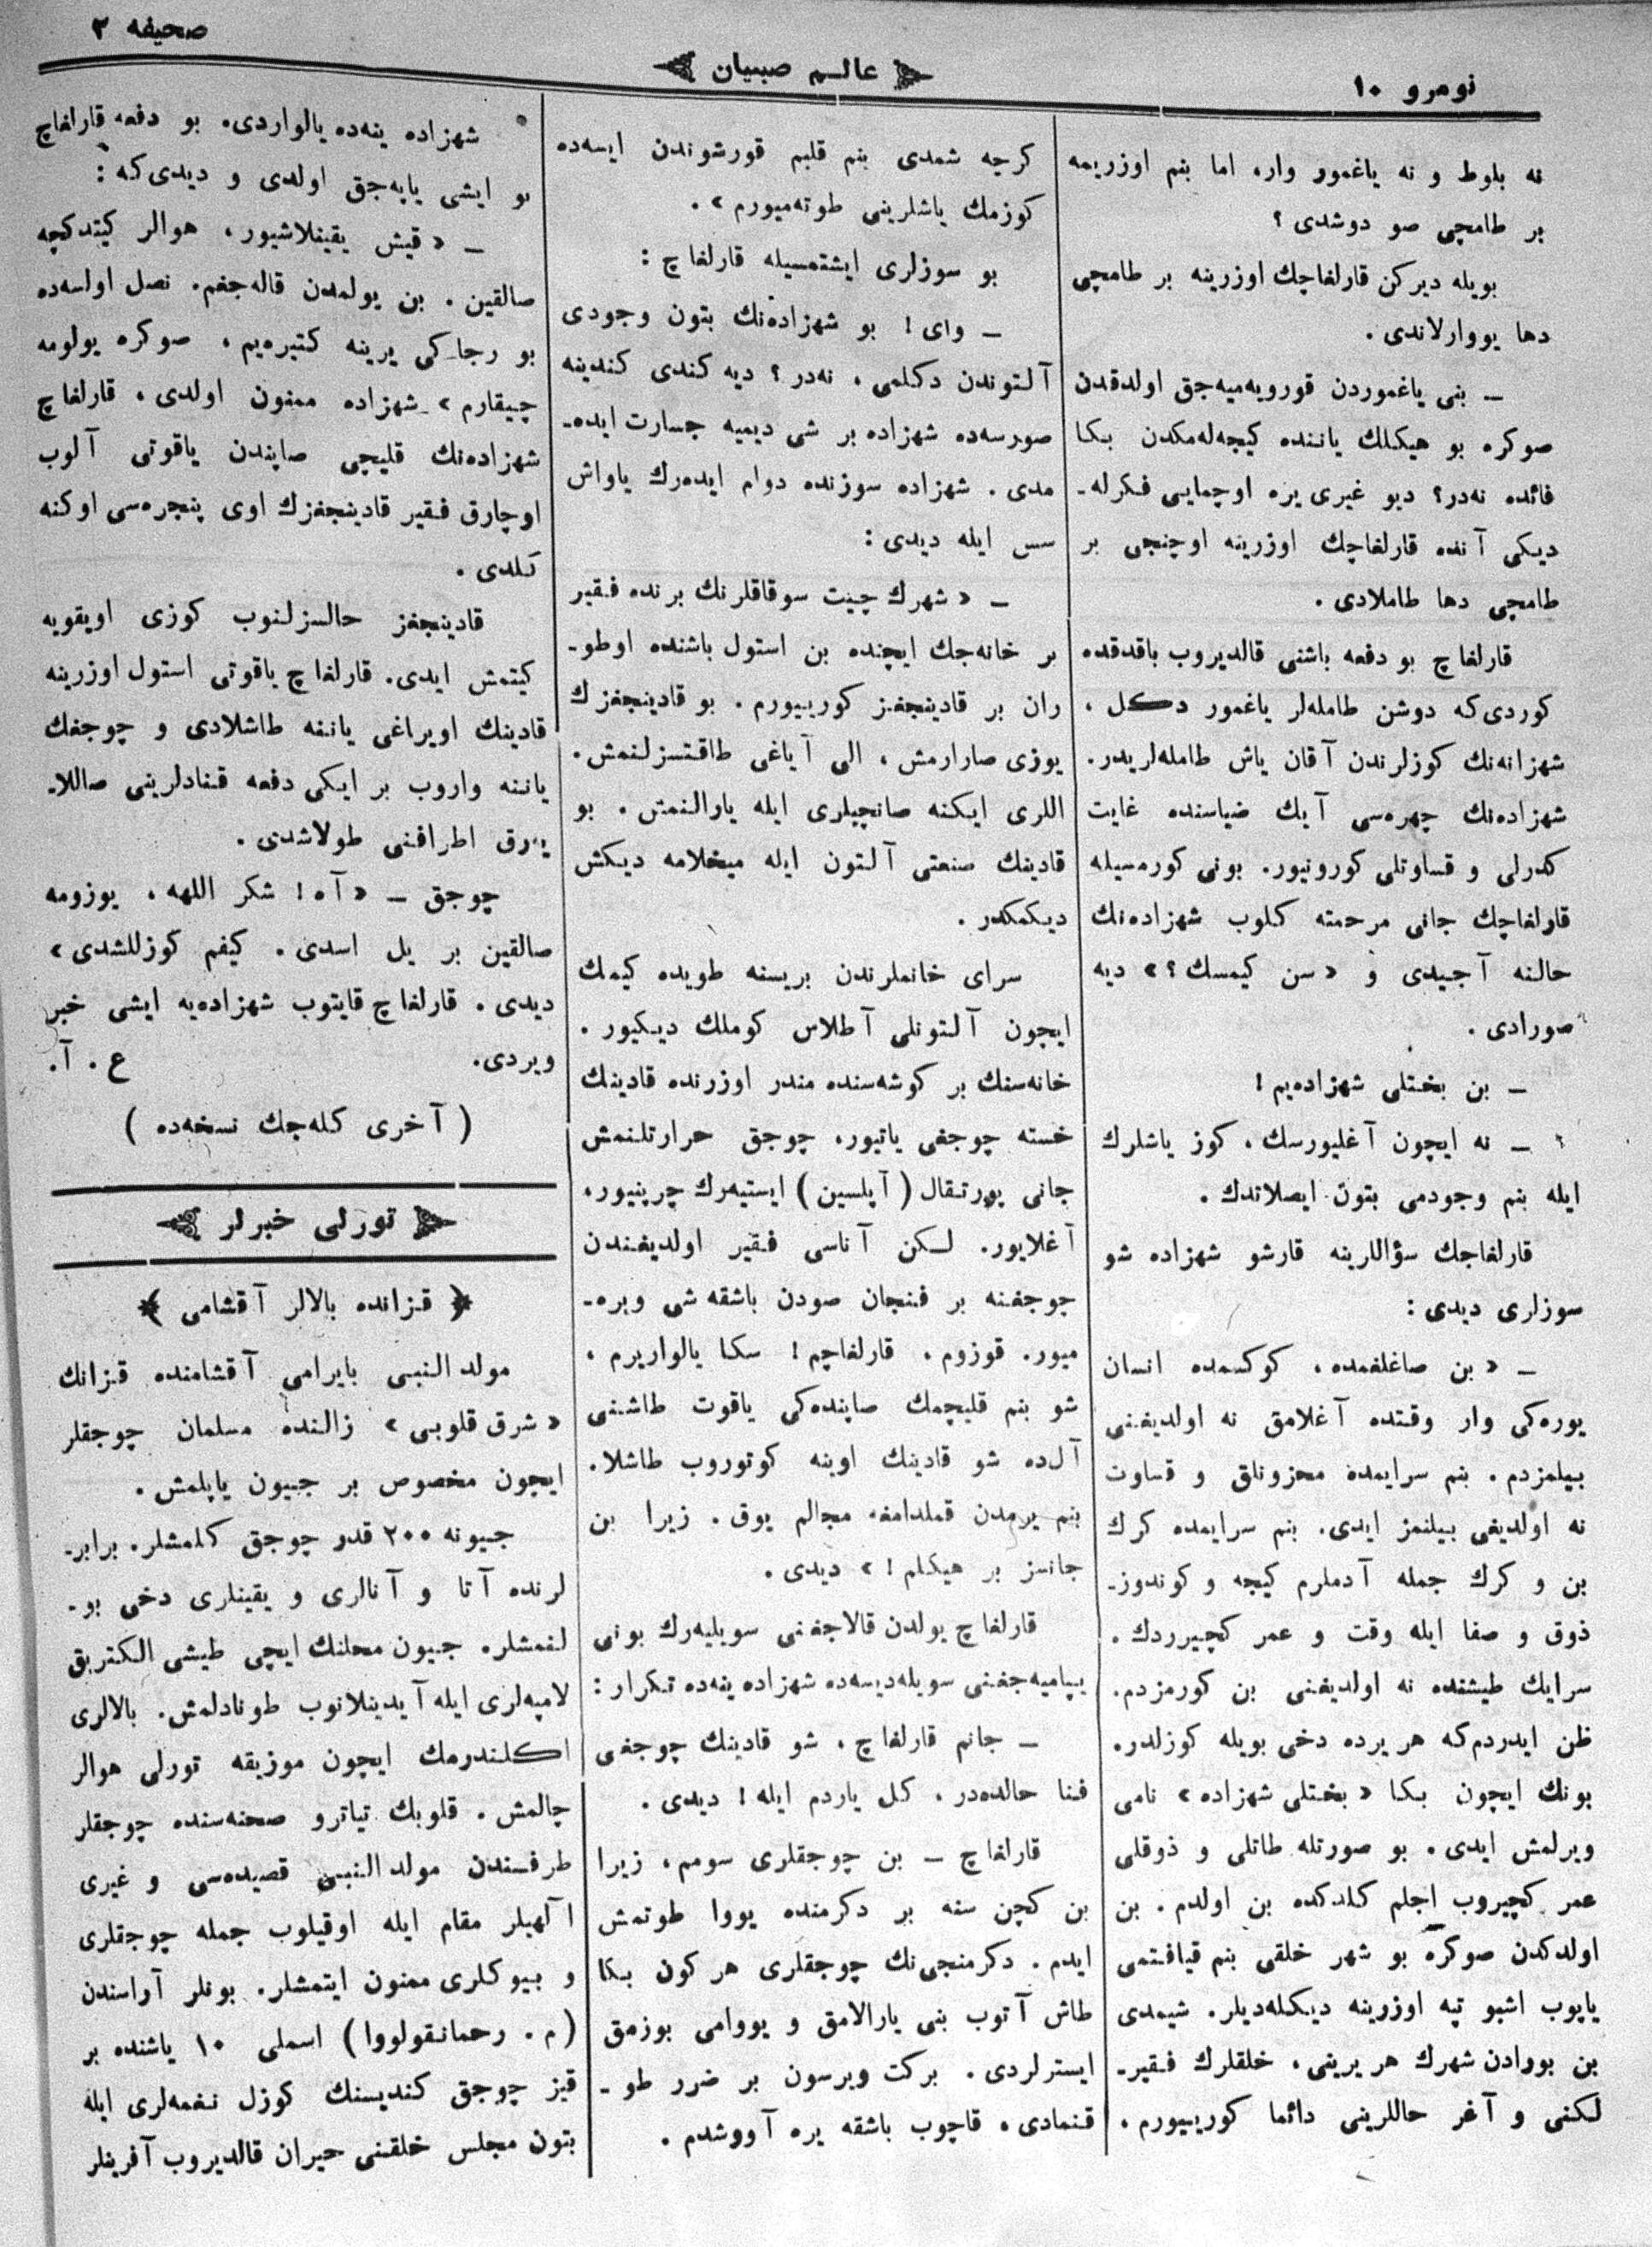 نومرو ١٠
عالم صبيان
صحيفه ٢
نه بلوط و نه ياغمور وار، اما بنم اوزريمه
بر طامچى صو دوشدى ؟
بويله ديركن قارلغاچك اوزرينه بر طامچى
دها يووارلاندى .
ــ بنى ياغموردن قورويه‌ميه‌جق اولدقدن
صوكره بو هيكلك ياننده كيجه‌له‌مكدن بكا
فائده نه‌در؟ ديو غيرى يره اوچمايى فكرله‌ـ
ديكى آنده قارلغاچك اوزرينه اوچنجى بر
طامچى دها طاملادى .
قارلغاچ بو دفعه باشنى قالديروب باقدقده
كوردى‌كه دوشن طامله‌لر ياغمور دكل ،
شهزانه‌نك كوزلرندن آقان ياش طامله‌لريدر.
شهزاده‌نك چهره‌سى آيك ضياسنده غايت
كدرلى و قساوتلى كورونيور. بونى كورمسيله
قارلغاچك جانى مرحمته كلوب شهزاده‌نك
حالنه آجيدى و « سن كيمسك ؟ » ديه
صورادى .
ــ بن بختلى شهزاده‌يم !
ــ نه ايچون آغليورسك ، كوز ياشلرك
ايله بنم وجودمى بتون ايصلاتدك .
قارلغاجك سؤاللرينه قارشو شهزاده شو
سوزلرى ديدى :
ــ « بن صاغلغمده ، كوكسمده انسان
يوره‌كى وار وقتده آغلامق نه اولديغنى
بيلمزدم . بنم سرايمده محزونلق و قساوت
نه اولديغى بيلنمز ايدى. بنم سرايمده كرك
بن و كرك جمله آدملرم كيجه و كوندوزـ
ذوق و صفا ايله وقت و عمر كچيرردك .
سرايك طيشنده نه اولديغنى بن كورمزدم.
ظن ايدردم‌كه هر يرده دخى بويله كوزلدر.
بونك ايچون بكا « بختلى شهزاده » نامى
ويرلمش ايدى . بو صورتله طاتلى و ذوقلى
عمر كچيروب اجلم كلدكده بن اولدم . بن
اولدكدن صوكره بو شهر خلقى بنم قيافتمى
ياپوب اشبو تپه اوزرينه ديكله‌ديلر. شيمدى
بن بورادن شهرك هر يرينى ، خلقلرك فقيرـ
لكنى و آغر حاللرينى دائما كورييورم .
كرچه شمدى بنم قلبم قورشوندن ايسه‌ده
كوزمك ياشلرينى طوته‌ميورم » .
بو سوزلرى ايشتمسيله قارلغاچ :
ــ واى ! بو شهزاده‌نك بتون وجودى
آلتوندن دكلمى ، نه‌در ؟ ديه كندى كندينه
صورسه‌ده شهزاده بر شى ديميه جسارت ايده‌ـ
مدى . شهزاده سوزنده دوام ايده‌رك ياواش
سس ايله ديدى :
ــ « شهرك چيت سوقاقلرنك برنده فقير
بر خانه‌جك ايچنده بن استول باشنده اوطوـ
ران بر قادينجغز كورييورم . بو قادينجغزك
يوزى صارارمش ، الى آياغى طاقتسزلنمش .
اللرى ايكنه صانچيلرى ايله يارالنمش . بو
قادينك صنعتى آلتون ايله ميخلامه ديكش
ديكمكدر .
سراى خانملرندن بريسنه طويده كيمك
ايچون آلتونلى آطلاس كوملك ديكيور .
خانه‌سنك بر كوشه‌سنده مندر اوزرنده قادينك
خسته چوجغى ياتيور، چوجق حرارتلنمش
جانى پورتقال ( آپلسين ) ايستيه‌رك چرپنيور،
آغلايور. لكن آناسى فقير اولديغندن
چوجغنه بر فنجان صودن باشقه شى ويره‌ـ
ميور. قوزوم ، قارلغاچم ! سكا يالواريرم ،
شو بنم قليچمك صاپنده‌كى ياقوت طاشنى
آل‌ده شو قادينك اوينه كوتوروب طاشلا.
بنم يرمدن قملدامغه مجالم يوق . زيرا بن
جانسز بر هيكلم ! » ديدى .
قارلغاچ يولدن قالاجغنى سويليه‌رك بونى
يپاميه‌جغنى سويله‌ديسه‌ده شهزاده ينه‌ده تكرار :
ــ جانم قارلغاچ ، شو قادينك چوجغى
فنا حالده‌در ، كل ياردم ايله ! ديدى .
قارلغاچ ــ بن چوجقلرى سومم ، زيرا
بن كچن سنه بر دكرمنده يووا طوتمش
ايدم . دكرمنجى‌نك چوجقلرى هر كون بكا
طاش آتوب بنى يارالامق و يووامى بوزمق
ايسترلردى . بركت ويرسون بر ضرر طو ـ
قنمادى ، قاچوب باشقه يره آووشدم .
شهزاده ينه‌ده يالواردى. بو دفعه قارلغاچ
بو ايشى ياپه‌جق اولدى و ديدى‌كه :
ــ « قيش يقينلاشيور ، هوالر كيتدكچه
صالقين . بن يولمدن قاله‌جغم. نصل اولسه‌ده
بو رجاكى يرينه كتيره‌يم ، صوكره يولومه
چيقارم » شهزاده ممنون اولدى ، قارلغاچ
شهزاده‌نك قليچى صاپندن ياقوتى آلوب
اوچارق فقير قادينجغزك اوى پنجره‌سى اوكنه
كلدى .
قادينجغز حالسزلنوب كوزى اويقويه
كيتمش ايدى. قارلغاچ ياقوتى استول اوزرينه
قادينك اويراغى ياننه طاشلادى و چوجغك
ياننه واروب بر ايكى دفعه قنادلرينى صاللاـ
يارق اطرافنى طولاشدى .
چوجق ــ « آه ! شكر اللهه ، يوزومه
صالقين بر يل اسدى . كيفم كوزللشدى »
ديدى . قارلغاچ قايتوب شهزاده‌يه ايشى خبر
ويردى. ع . آ .
( آخرى كله‌جك نسخه‌ده )
تورلى خبرلر
﴿ قزانده بالالر آقشامى ﴾
مولد النبى بايرامى آقشامنده قزانك
« شرق قلوبى » زالنده مسلمان چوجقلر
ايچون مخصوص بر جيون ياپلمش .
جيونه ٢٠٠ قدر چوجق كلمشلر. برابرـ
لرنده آتا و آنالرى و يقينلرى دخى بو ـ
لنمشلر. جيون محلنك ايچى طيشى الكتريق
لامپه‌لرى ايله آيدينلانوب طونادلمش. بالالرى
اكلندرمك ايچون موزيقه تورلى هوالر
چالمش . قلوبك تياترو صحنه‌سنده چوجقلر
طرفندن مولد النبى قصيده‌سى و غيرى
آلهيلر مقام ايله اوقيلوب جمله چوجقلرى
و بيوكلرى ممنون ايتمشلر. بونلر آراسندن
( م . رحمانقولووا ) اسملى ١٠ ياشنده بر
قيز چوجق كنديسنك كوزل نغمه‌لرى ايله
بتون مجلس خلقنى حيران قالديروب آفرينلر